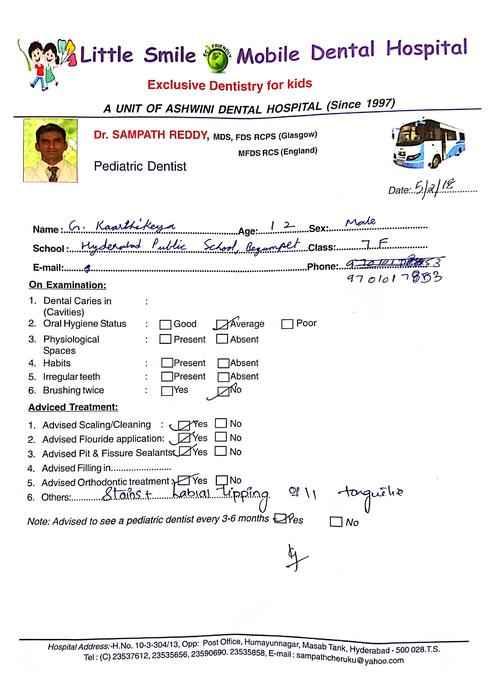 Little Smile ECO FRIENDLY Mobile Dental Hospital
Exclusive Dentistry for kids
A UNIT OF ASHWINI DENTAL HOSPITAL (Since 1997)
Dr. SAMPATH REDDY, MDS, FDS RCPS (Glasgow)
MFDS RCS (England)
Pediatric Dentist
Date: 5/2/18
Name: G. Kaarthikeya Age: 12 Sex: Male
School: Hyderabad Public School, Begumpet Class: 7 F
E-mail: Phone:
9701017883
On Examination:
1. Dental Caries in :
(Cavities)
2. Oral Hygiene Status : Good Average Poor
3. Physiological : Present Absent
Spaces
4. Habits : Present Absent
5. Irregular teeth : Present Absent
6. Brushing twice : Yes No
Adviced Treatment:
1. Advised Scaling/Cleaning : Yes No
2. Advised Flouride application: Yes No
3. Advised Pit & Fissure Sealants: Yes No
4. Advised Filling in.....................
5. Advised Orthodontic treatment: Yes No
6. Others: Stains + Labial tipping
Note: Advised to see a pediatric dentist every 3-6 months Yes No
Hospital Address:-H.No. 10-3-304/13, Opp: Post Office, Humayunnagar, Masab Tank, Hyderabad - 500 028.T.S.
Tel : (C) 23537612, 23535656, 23590690. 23535858, E-mail : sampathcheruku@yahoo.com